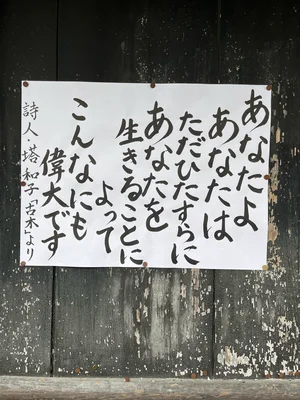 あなたよ
あなたは
ただひたすらに
あなたを
生きることに
よって
こんなにも
偉大です
詩人、塔 和子「古木」より